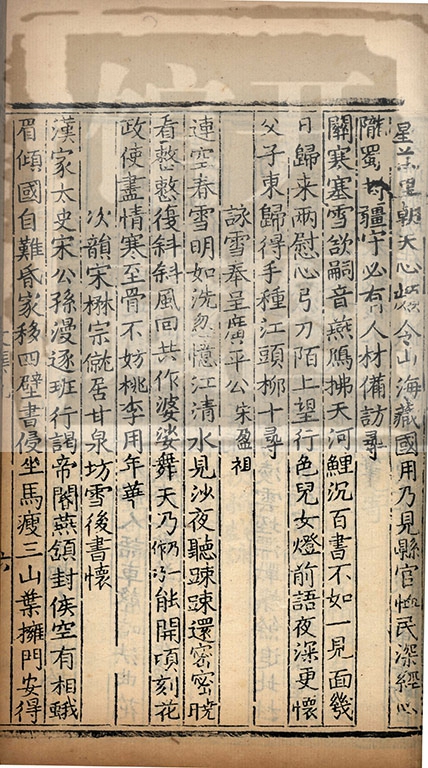 星羔裘朝天心此令山海藏國用乃見縣官恤民深經心
隴蜀封疆守必有人材備訪尋
關寒塞雪欲嗣音燕鴈拂天河鯉沉百書不如一見面幾
日歸来兩慰心弓刀陌上望行色兒女燈前語夜深更懷
父子東歸得手種江頭柳十尋
詠雪奉呈廣平公 宋盈祖
連空春雪明如洗忽憶江清水見沙夜聽疎疎還密密曉
看整整復斜斜風回共作婆娑舞天乃能開項刻花
政使盡情寒至骨不妨桃李用年華
次韻宋楙宗僦居甘泉坊雪後書懷
漢家太史宋公孫漫逐班行謁帝閽燕頷封侯空有相蛾
眉傾國自難昏家移四壁書侵坐馬瘦三山葉擁門安得
六